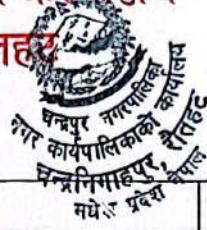 तहट
चन्द्रपुर नगरपालिका
नगर कार्यपालिकाको कार्यालय
चन्द्रनिगाहपुर, रौतहट
मधेश प्रदेश नेपाल